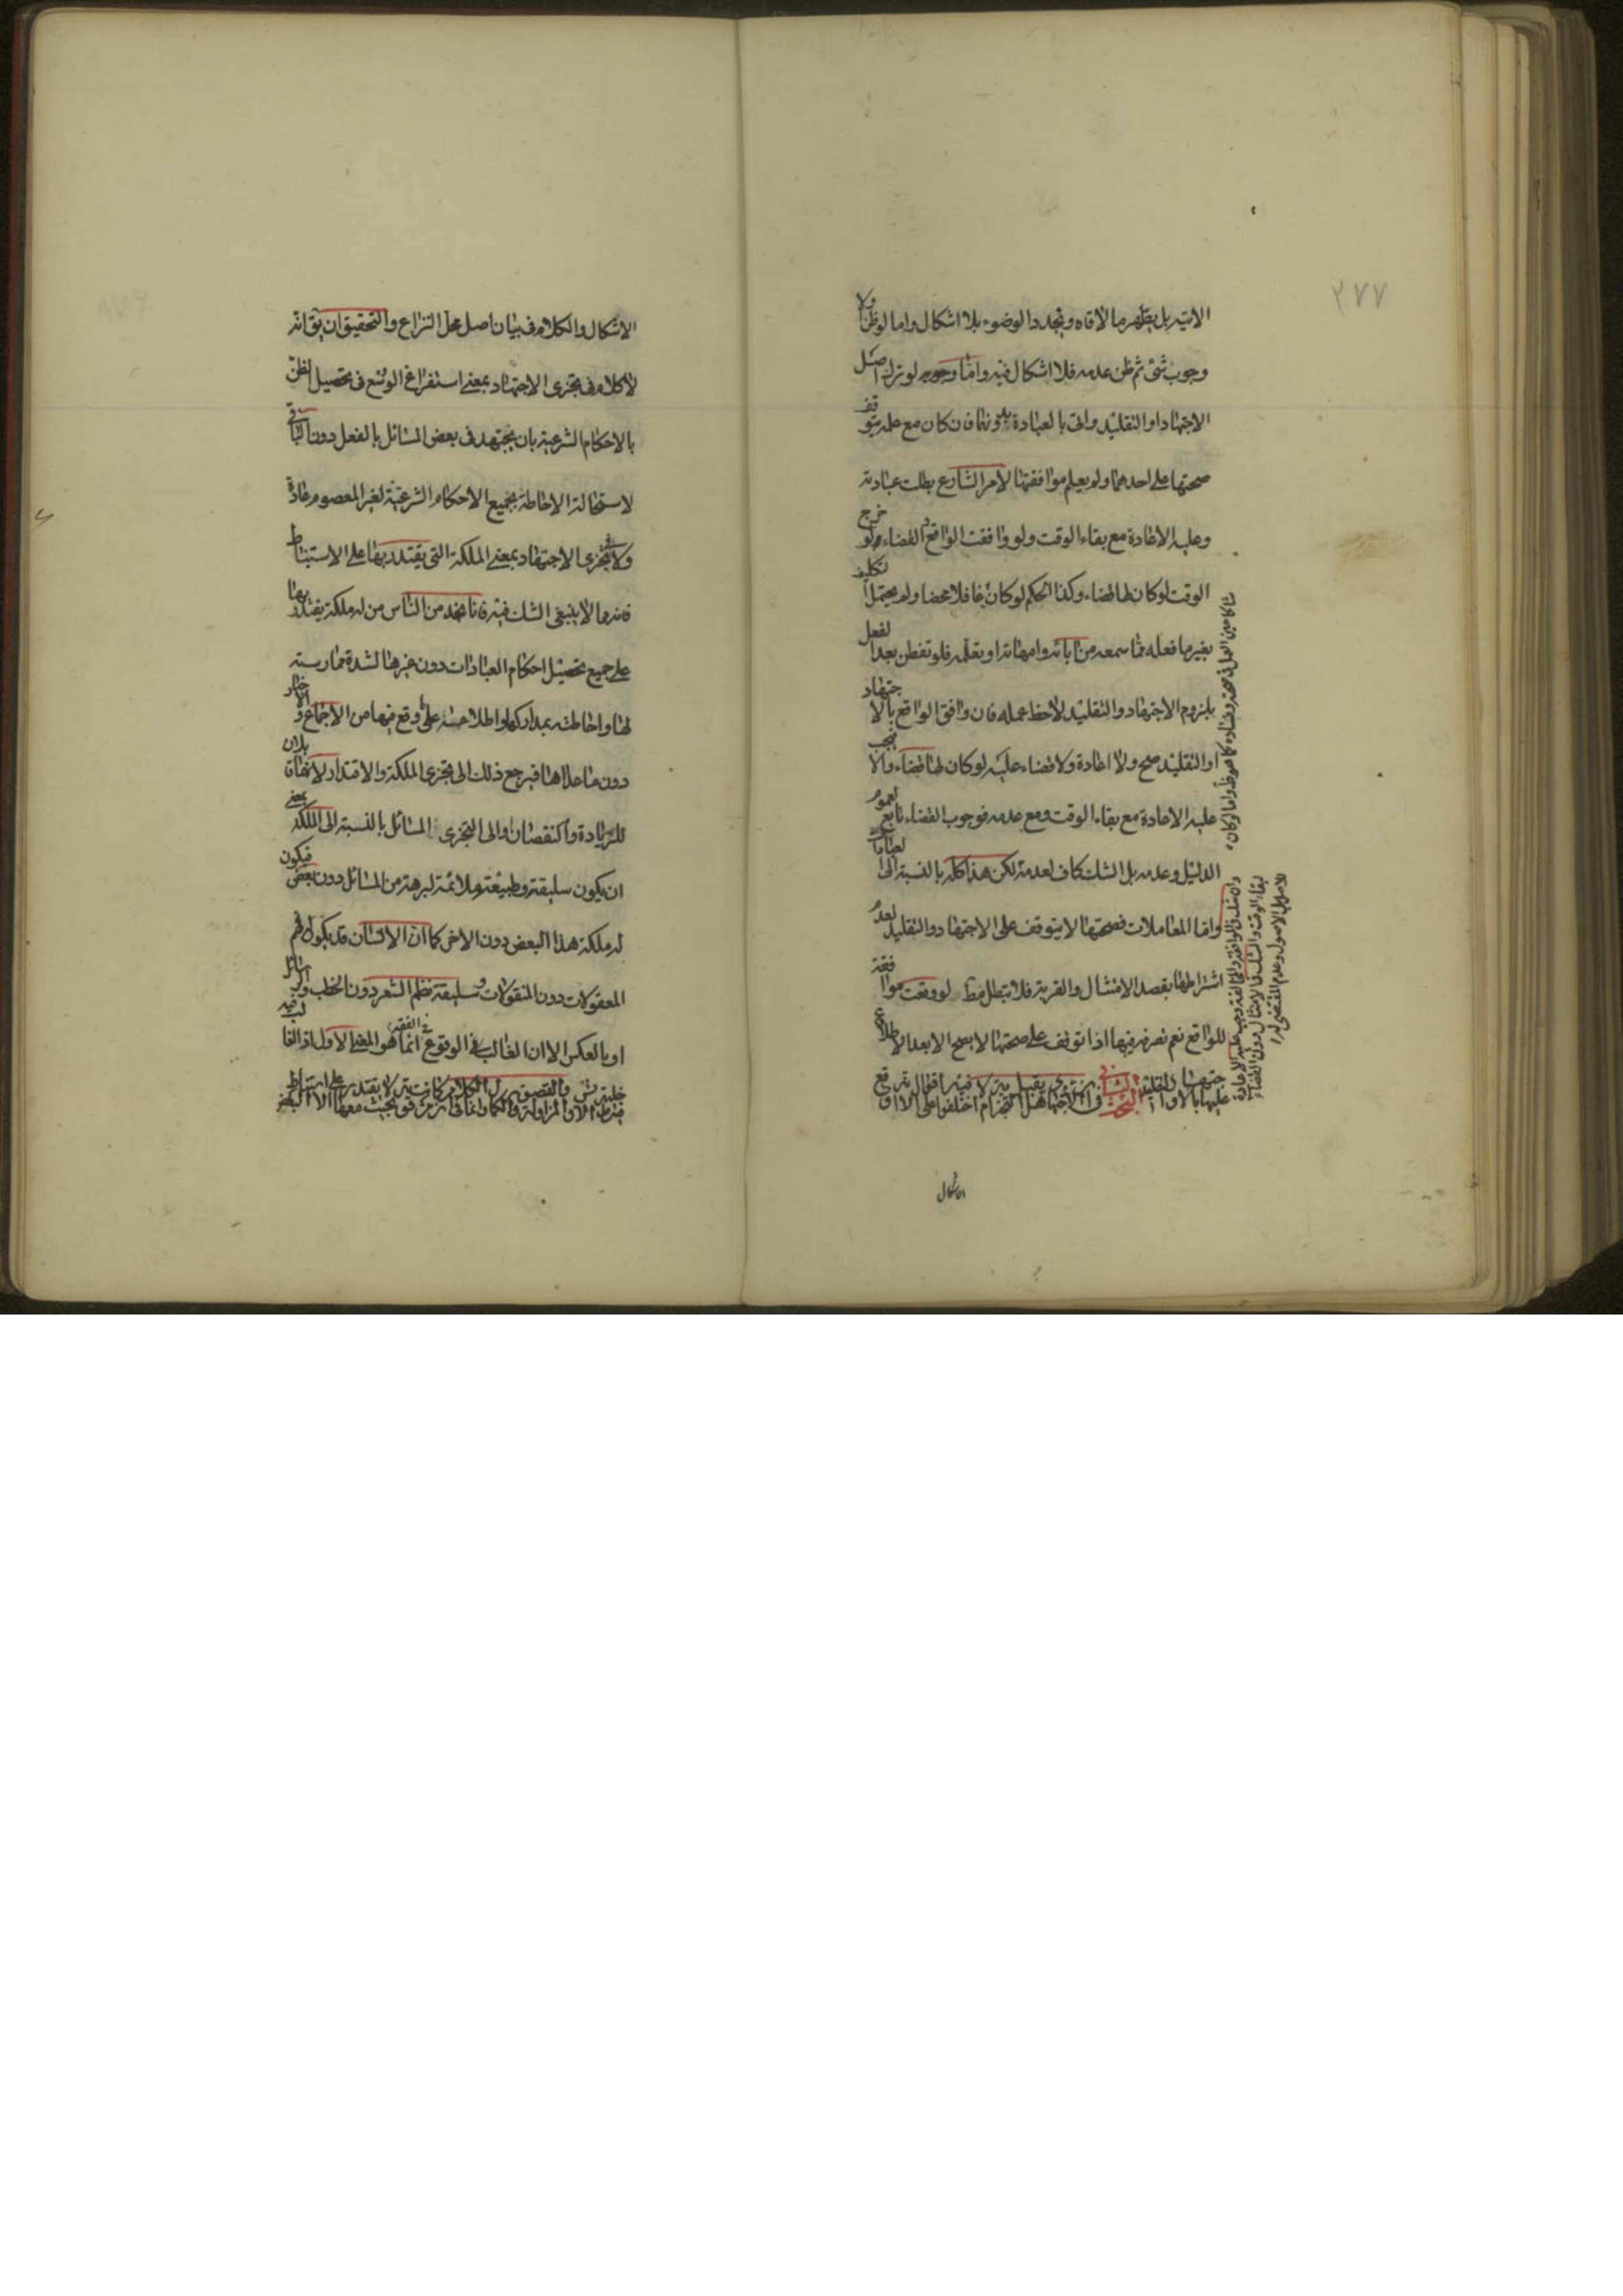 ٢٧٧
الاتية بل يطهر ما لاقاه ويجدد الوضوء بلا اشكال واما لو ظن اولا
وجوب شئ ثم ظن عدمه فلا اشكال فيه واما وجوبه لو ترك اصل
الاجتهاد او التقليد واتى بالعبادة بدونهما فان كان مع علمه بتوقف
صحتها على احدهما ولم يعلم موافقتها لامر الشارع بطلت عبادته
وعليه الاعادة مع بقاء الوقت ولو وافقت الواقع والقضاء لو خرج
الوقت لو كان لها قضاء وكذا الحكم لو كان غافلا محضا ولم يحتمل التكليف
بغير ما فعله مما سمعه من ابائه وامهاته او تعلمه فلو تفطن بعد الفعل
بلزوم الاجتهاد والتقليد لاحظ عمله فان وافق الواقع بالاجتهاد
او التقليد صح ولا اعادة ولا قضاء عليه لو كان لها قضاء والا فيجب
عليه الاعادة مع بقاء الوقت ومع عدمه فوجوب القضاء تابع لعموم
الدليل وعدمه بل الشك كاف لعدمه لكن هذا كله بالنسبة الى العبادات
واما المعاملات فصحتها لا يتوقف على الاجتهاد والتقليد لعدم
اشتراطها بقصد الامتثال والقربة فلا تبطل لو وقعت موافقة
للواقع نعم تصرفه فيها اذا توقف على صحتها لا يصح الا بعد الاطلاع
عليها بالاجتهاد او التقليد البحث الثانى فى ان الاجتهاد هل يقبل التجزى ام لا اختلفوا فيه على اقوال الا انه وقع
شاكا حين العمل فى صحته وفساده كما هو ظ واما لو كان
وان شك فى الموافقة والمخالفة وجب عليه الاعادة
لبقاء الوقت والشك فى الامتثال دون القضاء
للاصول وعدم المقتضى له
الاشكال
الاشكال والكلام فى بيان اصل محل النزاع والتحقيق ان يق انه
لا كلام فى تجزى الاجتهاد بمعنى استفراغ الوسع فى تحصيل الظن
بالاحكام الشرعية بان يجتهد فى بعض المسائل بالفعل دون الباقى
لاستحالة الاحاطة بجميع الاحكام الشرعية لغير المعصوم عادة
ولا فى تجزى الاجتهاد بمعنى الملكة التى يقتدر بها على الاستنباط
فانه مما لا ينبغى الشك فيه فانا نجد من الناس من له ملكة يقتدر بها
على جميع تحصيل احكام العبادات دون غيرها لشدة ممارسته
لها واحاطته بمداركها واطلاعه على ما وقع فيها من الاجماع والاخبار
دون ما عداها فيرجع ذلك الى تجزى الملكة والاقتدار لانهما قابلان
للزيادة والنقصان او الى التجزى المسائل بالنسبة الى الملكة بمعنى
ان يكون سليقته وطبيعته ملائمة لبرهة من المسائل دون بعض فيكون
له ملكة هذا البعض دون الاخر كما ان الانسان قد يكون له فهم
المعقولات دون المنقولات وسليقة نظم الشعر دون الخطب والرسائل
او بالعكس الا ان الغالب فى الوقوع فى الفقه انما هو المعنى الاول اذ الغالب فيه